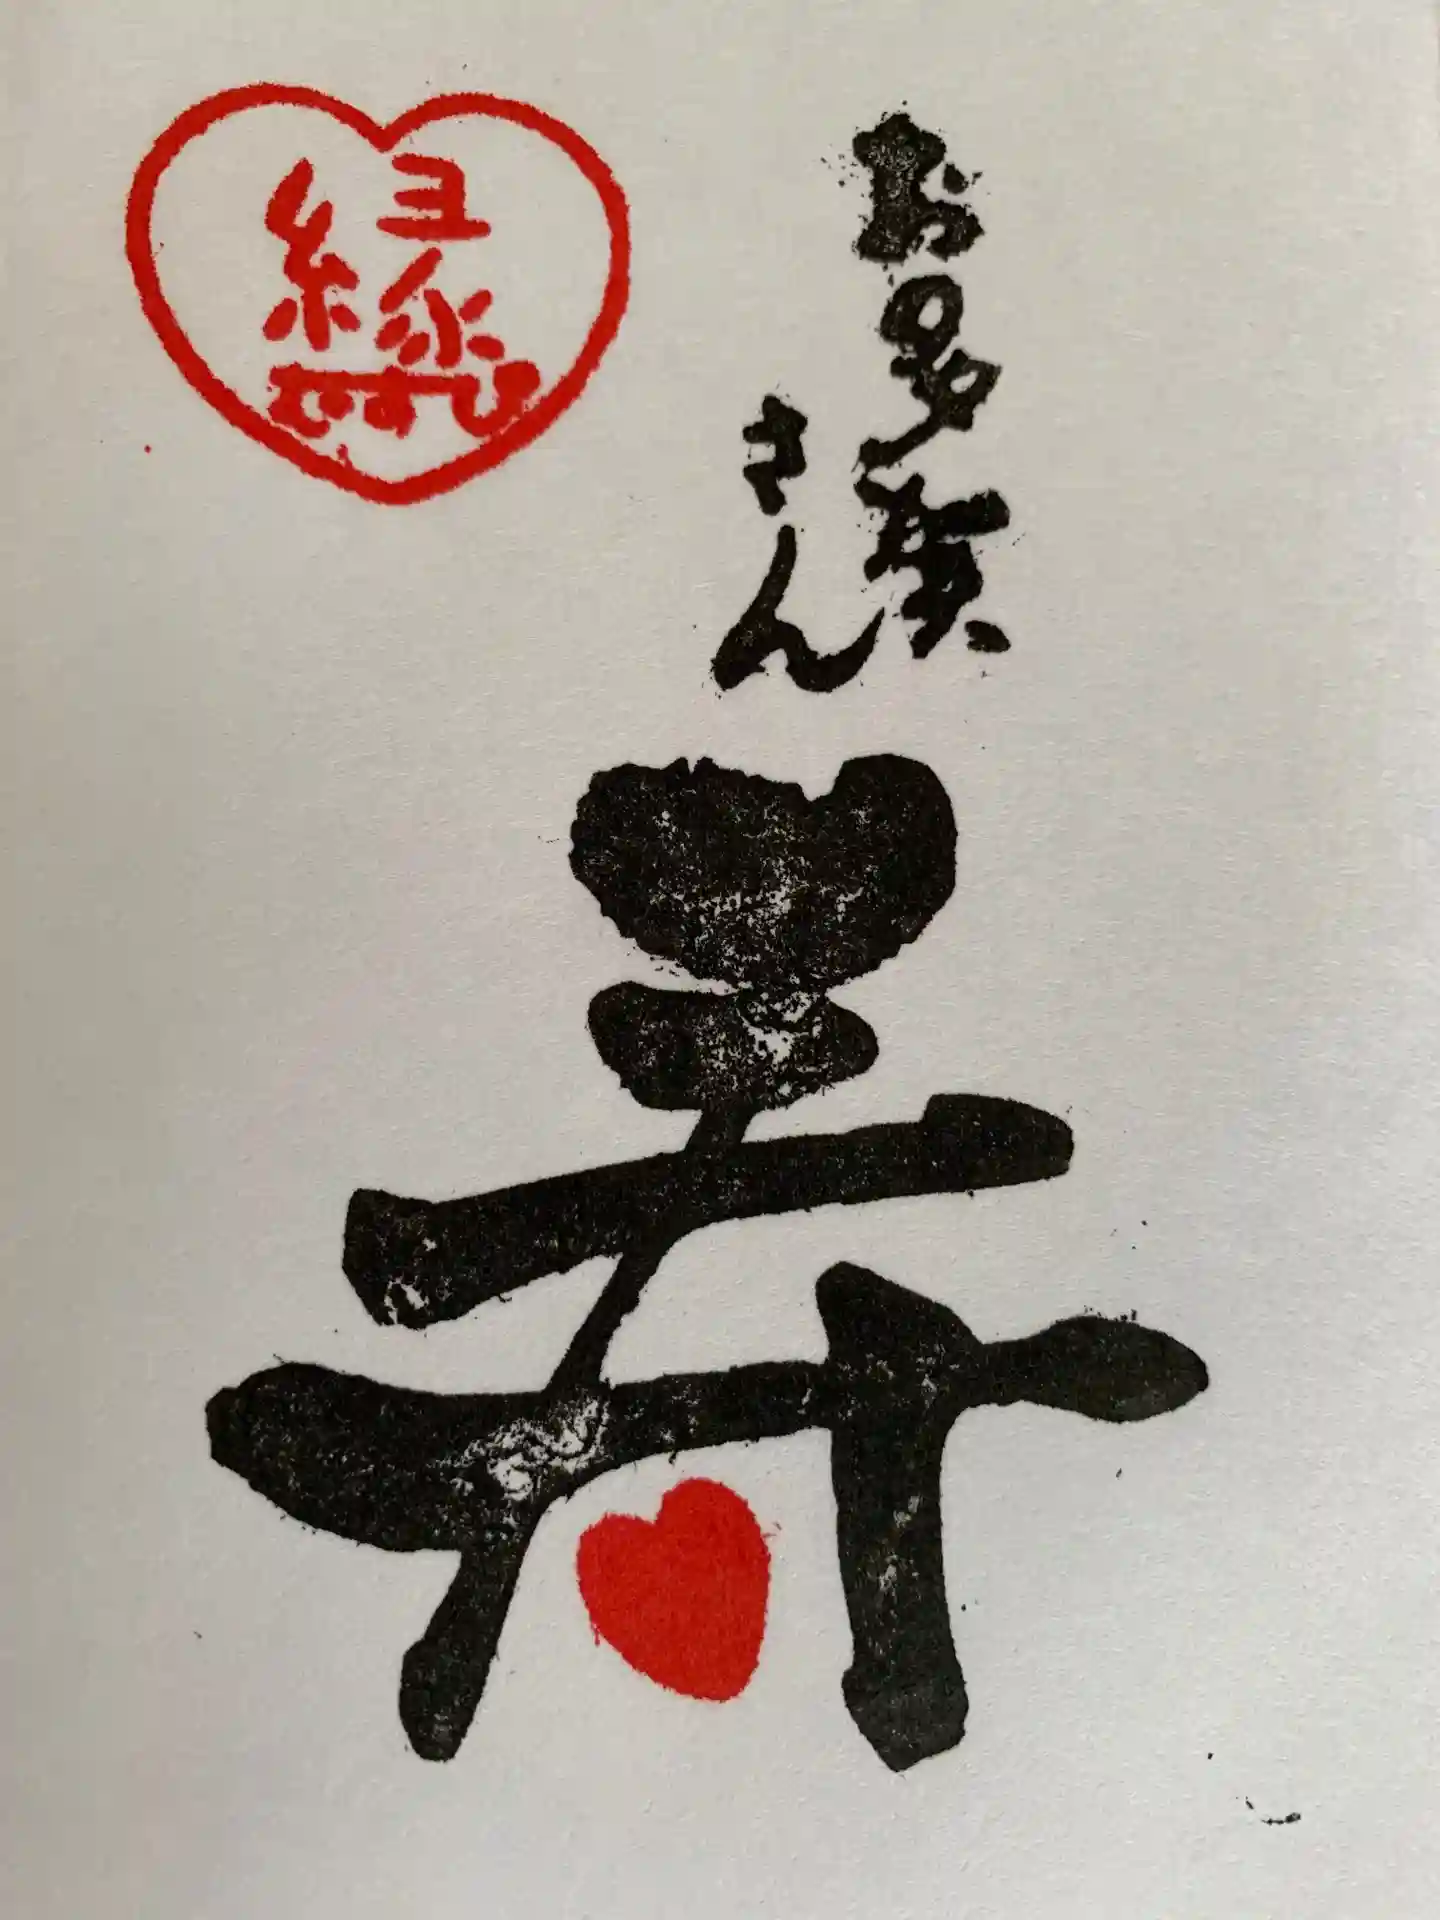 お多賀
さん
寿
縁
むすび